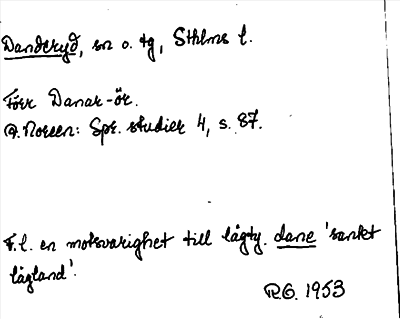 Danderyd, sn o. tg, Sthlms l.
Förr Danar-ör.
A. Noreen: Spr. studier 4, s. 87.
F.l. en motsvarighet till lågty. dane 'sankt
lågland'.
R.O. 1953